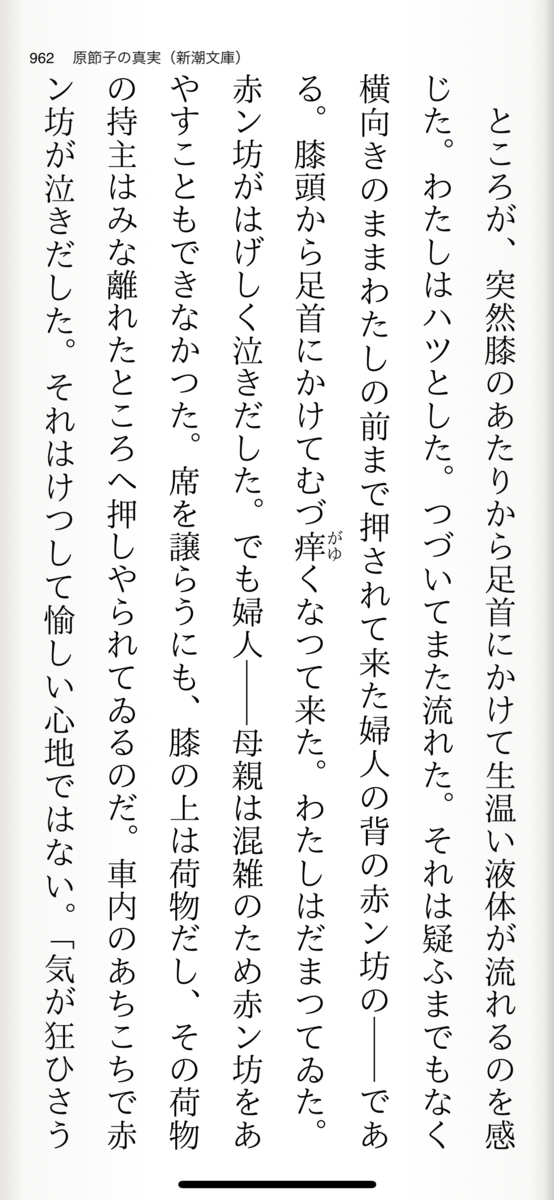 962 原節子の真実（新潮文庫）
ところが、突然膝のあたりから足首にかけて生温い液体が流れるのを感
じた。わたしはハツとした。つづいてまた流れた。それは疑ふまでもなく
横向きのままわたしの前まで押されて来た婦人の背の赤ン坊の――であ
る。膝頭から足首にかけてむづ痒くなつて来た。わたしはだまつてゐた。
がゆ
赤ン坊がはげしく泣きだした。でも婦人――母親は混雑のため赤ン坊をあ
やすこともできなかつた。席を譲らうにも、膝の上は荷物だし、その荷物
の持主はみな離れたところへ押しやられてゐるのだ。車内のあちこちで赤
ン坊が泣きだした。それはけつして愉しい心地ではない。「気が狂ひさう